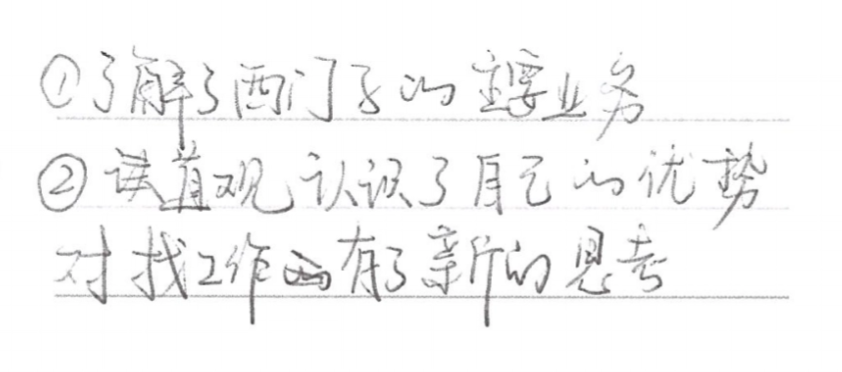 ①了解了西门子的主要业务
②谈直观认识了自己的优势
对找工作而有了新的思考